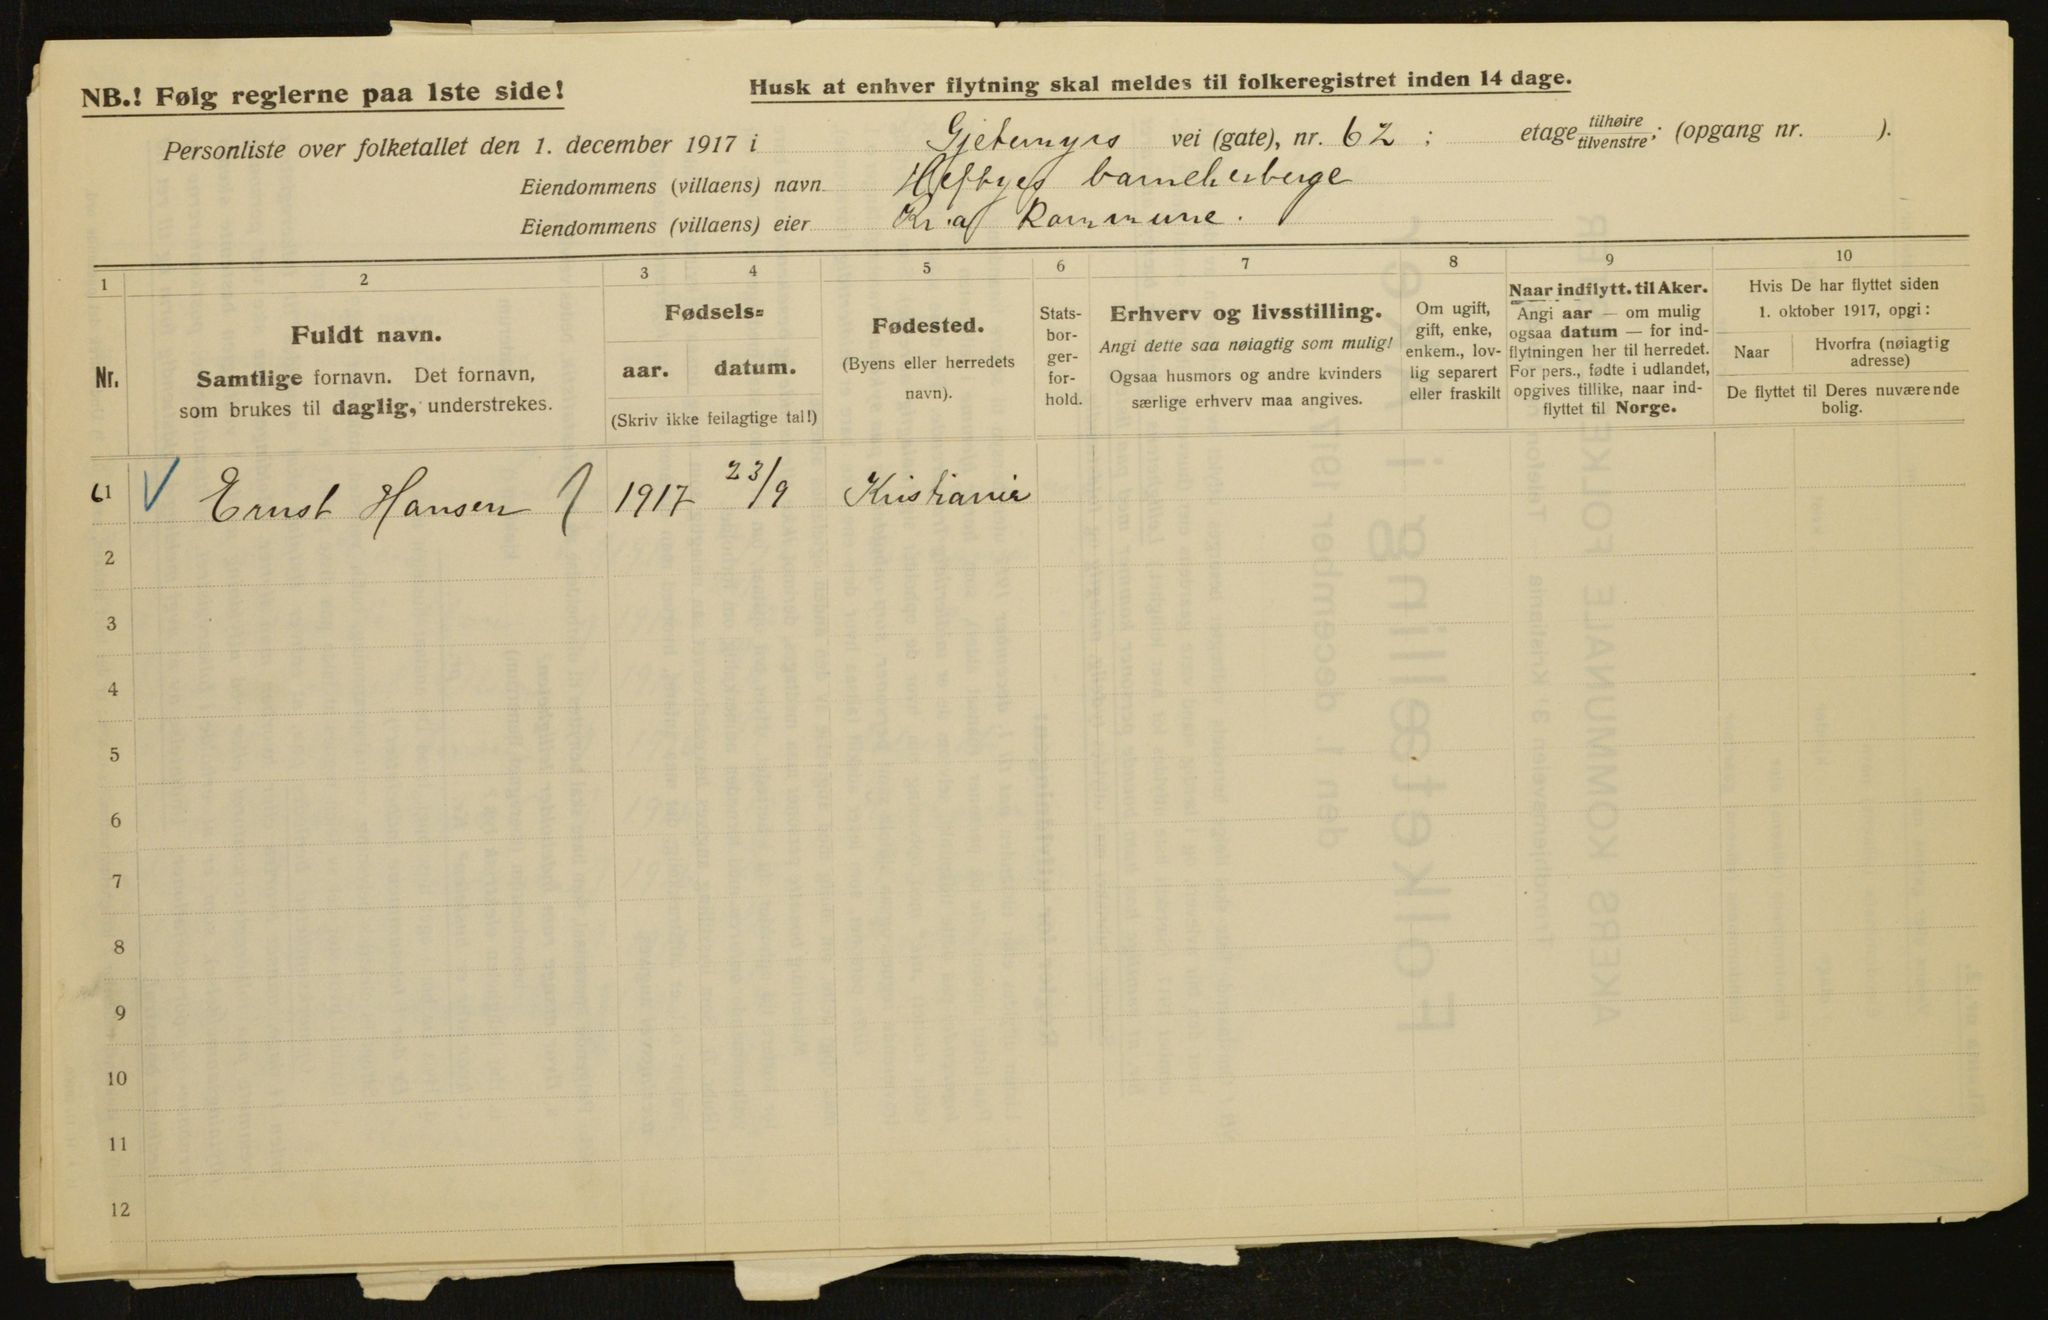 NB.! Følg reglerne paa 1ste side!
Husk at enhver flytning skal meldes til folkeregistret inden 14 dage.
Personliste over folketallet den 1. december 1917 i Gjetemyrs vei (gate), nr. 62 ; etage tilhøire tilvenstre ; (opgang nr. ).
Eiendommens (villaens) navn Heftyes barneherberge
Eiendommens (villaens) eier Kr.a kommune.
1 2 3 4 5 6 7 8 9 10
Nr.
Fuldt navn.
Samtlige fornavn. Det fornavn,
som brukes til daglig, understrekes.
Fødsels=
aar. datum.
(Skriv ikke feilagtige tal!)
Fødested.
(Byens eller herredets
navn).
Stats-
bor-
ger-
for-
hold.
Erhverv og livsstilling.
Angi dette saa nøiagtig som mulig!
Ogsaa husmors og andre kvinders
særlige erhverv maa angives.
Om ugift,
gift, enke,
enkem., lov-
lig separert
eller fraskilt
Naar indflytt. til Aker.
Angi aar — om mulig
ogsaa datum — for ind-
flytningen her til herredet.
For pers., fødte i udlandet,
opgives tillike, naar ind-
flyttet til Norge.
Hvis De har flyttet siden
1. oktober 1917, opgi:
Naar
Hvorfra (nøiagtig
adresse)
De flyttet til Deres nuværende
bolig.
61 V Ernst Hansen 1917 23/9 Kristiania
2
3
4
5
6
7
8
9
10
11
12